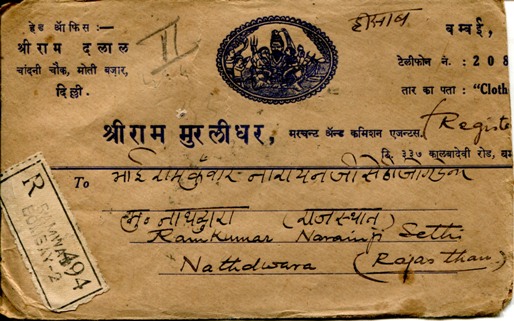 हेड ऑफिस :—
श्रीराम दलाल
चांदनी चौक, मोती बजार,
दिल्ली.
VI
हीसाब
बम्बई,
टेलीफोन नं. : 208
तार का पता : "Cloth
श्रीराम मुरलीधर, मरचन्ट ॲन्ड कमिशन एजन्टस.
(Registe
ठि. ३३७ कालबादेवी रोड,
R
BOMBAY-2
494
To
मु. नाथद्वारा (राजस्थान)
Ramkumar Narainji Sethi
Nathdwara (Rajasthan)